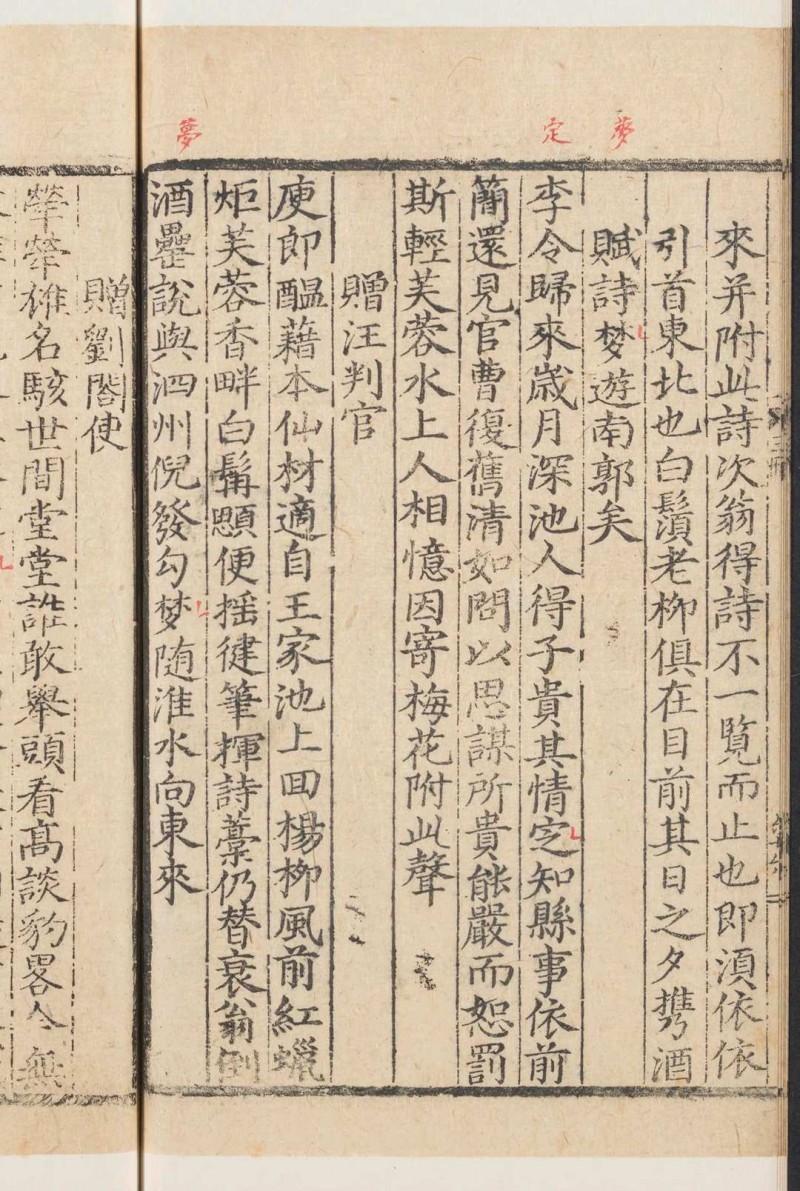 夢
定
夢
來并附此詩次翁得詩不一覧而止也即湏依依
引首東北也白鬚老柳俱在目前其日之夕携酒
賦詩梦遊南郭矣
李令歸來歳月深池人得子貴其情㝎知縣事依前
簡還見官曹復舊清如問以思謀所貴能嚴而恕罰
斯輕芙蓉水上人相憶因寄梅花附此聲
贈汪判官
庾郎醖藉本仙材適自王家池上回楊柳風前紅蠟
炬芙蓉香畔白髯顋便揺健筆揮詩藁仍替衰翁倒
酒罍說與泗州倪發勾梦随淮水向東來
贈劉閤使
犖犖雄名駭世間堂堂誰敢舉頭看髙談豹畧今無